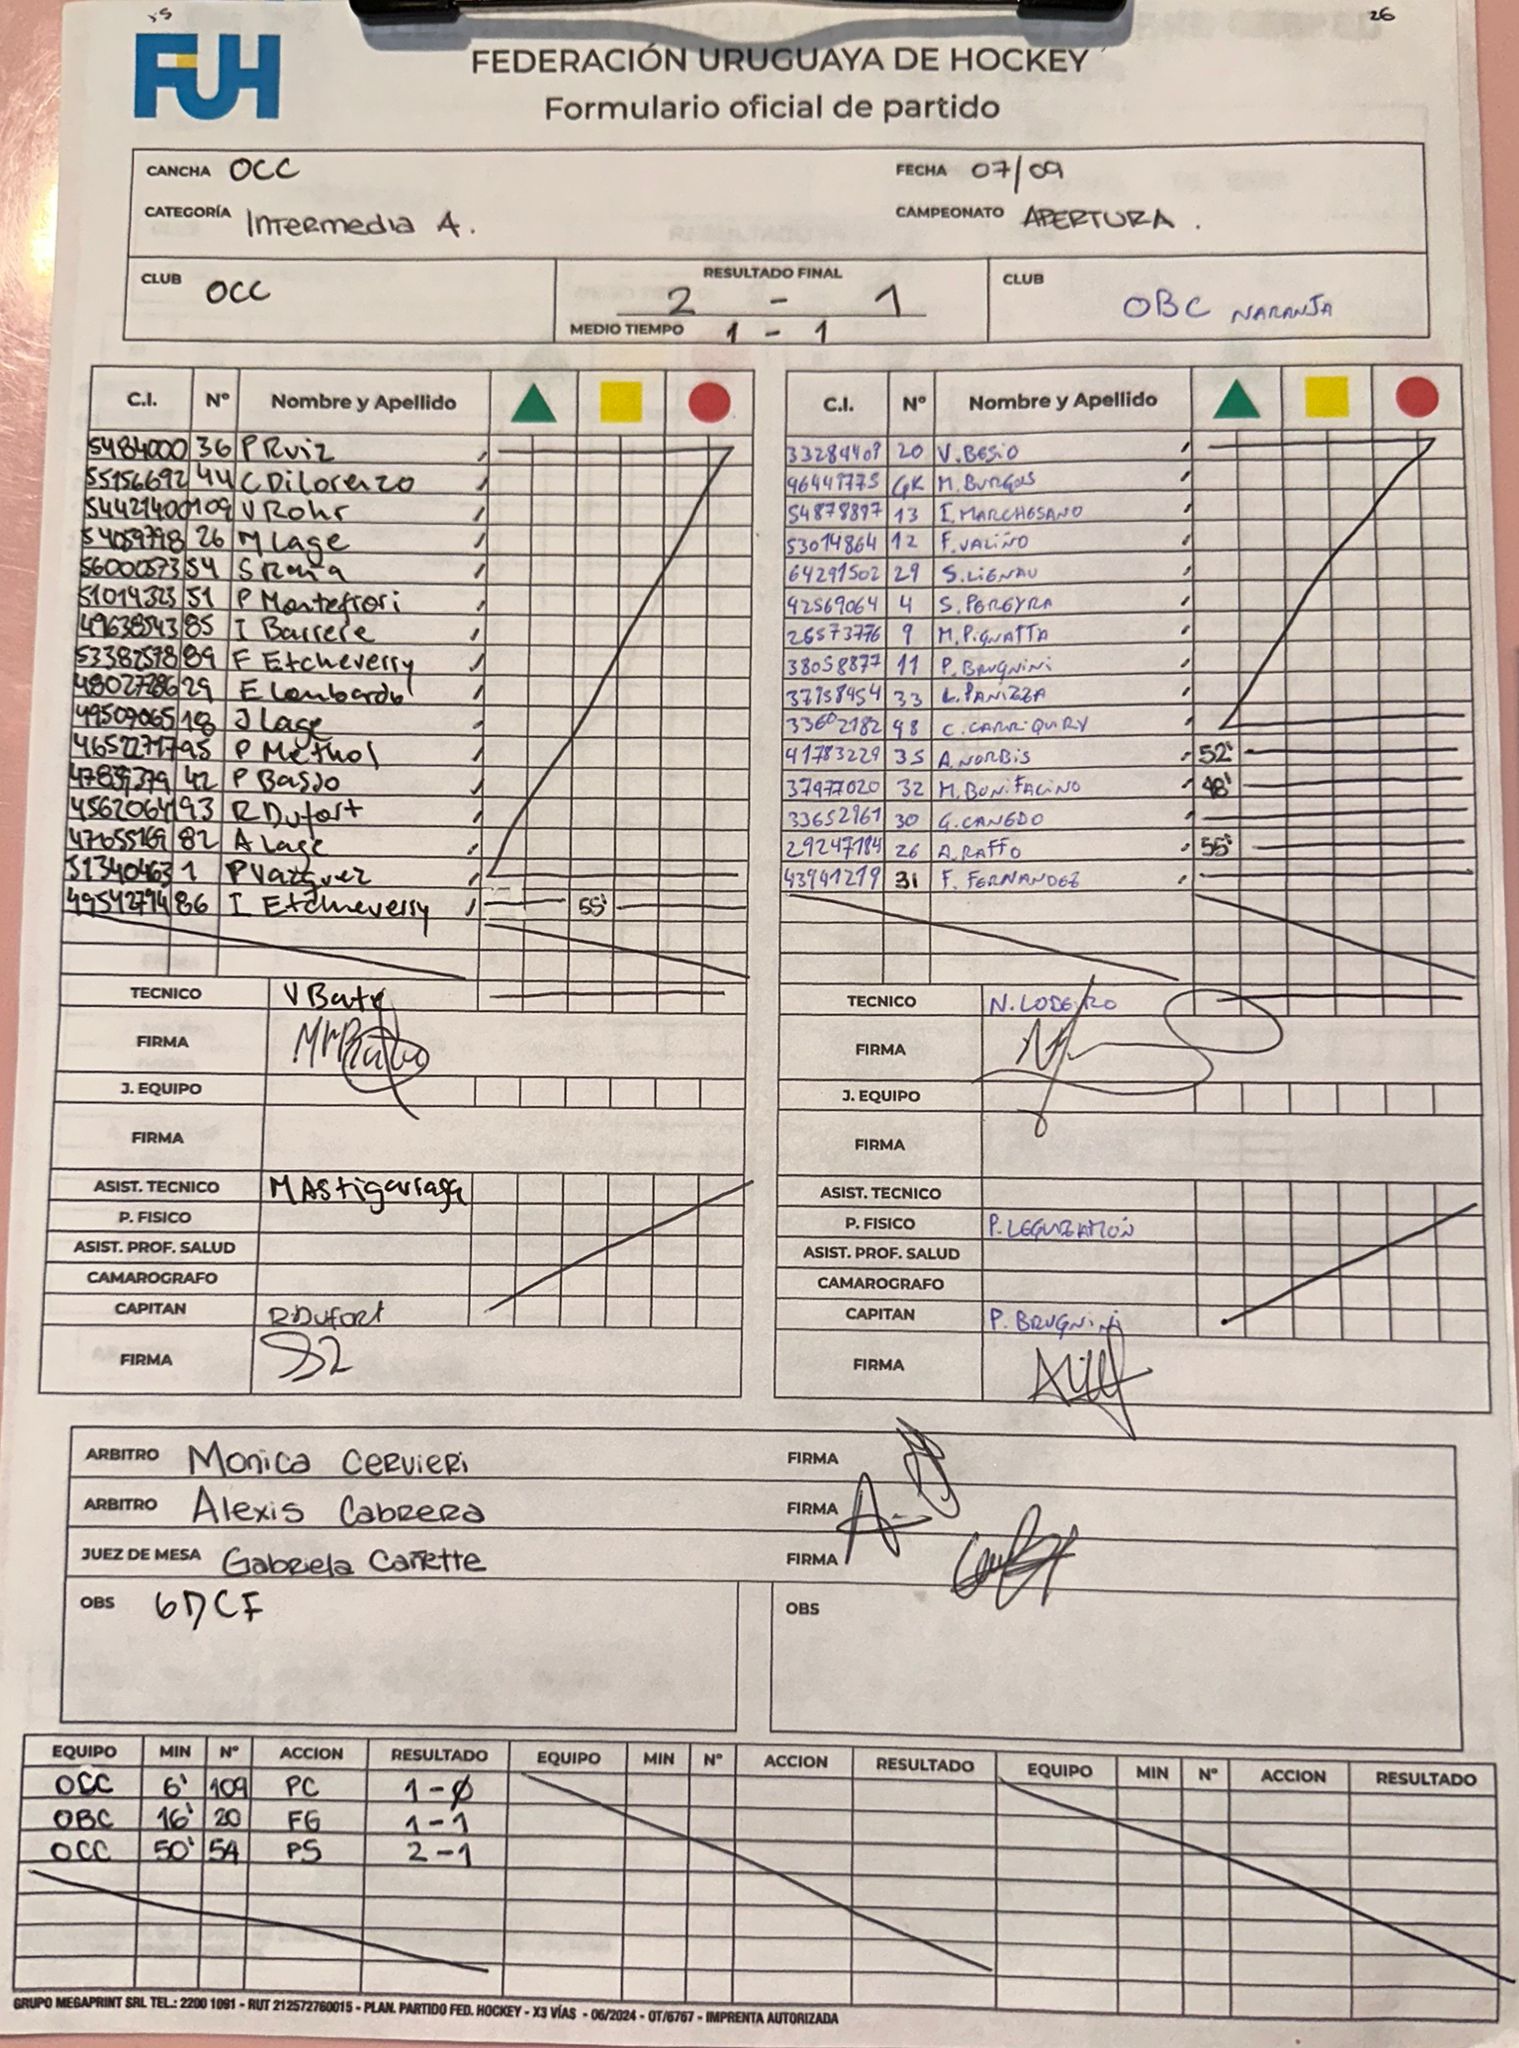 26
FUH
FEDERACIÓN URUGUAYA DE HOCKEY
Formulario oficial de partido
CANCHA OCC
FECHA 07/09
CATEGORÍA Intermedia A.
CAMPEONATO APERTURA.
CLUB OCC
RESULTADO FINAL
2 - 1
MEDIO TIEMPO 1 - 1
CLUB
OBC NARANJA
C.I. Nº Nombre y Apellido
5484000 36 P Ruiz
55156692 44 C DiLorenzo
54421400 109 V Rohr
54059798 26 M Lage
56000573 54 S Raña
51014323 51 P Montefiori
49638543 85 I Barrere
53382578 89 F Etcheverry
48027286 29 E Lombardo
49509065 18 J Lage
46522717 95 P Methol
47837379 42 P Basso
45620649 93 R Dufort
47655169 82 A Lage
51340463 1 P Vazquez
49542794 86 I Etcheverry 55'
TECNICO V Baty
FIRMA
J. EQUIPO
FIRMA
ASIST. TECNICO M Astigarraga
P. FISICO
ASIST. PROF. SALUD
CAMAROGRAFO
CAPITAN R Dufort
FIRMA
C.I. Nº Nombre y Apellido
33284409 20 V. BESIO
46441775 GK M. BURGOS
54878897 13 I. MARCHESANO
53014864 12 F. VALIÑO
64291502 29 S. LIGNAU
42569064 4 S. PEREYRA
26573776 9 M. PIGNATTA
38058877 11 P. BRUGNINI
37758454 33 L. PANIZZA
33602182 98 C. CARRIQUIRY
41783229 35 A. NORBIS 52'
37977020 32 M. BONIFACINO 48'
33652961 30 G. CANEDO
29247184 26 A. RAFFO 55'
43941219 31 F. FERNANDEZ
TECNICO N. LODEIRO
FIRMA
J. EQUIPO
FIRMA
ASIST. TECNICO
P. FISICO P. LEGUIZAMÓN
ASIST. PROF. SALUD
CAMAROGRAFO
CAPITAN P. BRUGNINI
FIRMA
ARBITRO Monica Cervieri FIRMA
ARBITRO Alexis Cabrera FIRMA
JUEZ DE MESA Gabriela Cañette FIRMA
OBS 6DCF
OBS
EQUIPO MIN Nº ACCION RESULTADO EQUIPO MIN Nº ACCION RESULTADO EQUIPO MIN Nº ACCION RESULTADO
OCC 6' 109 PC 1 - 0
OBC 16' 20 FG 1 - 1
OCC 50' 54 PS 2 - 1
GRUPO MEGAPRINT SRL TEL.: 2200 1091 - RUT 212572760015 - PLAN. PARTIDO FED. HOCKEY - X3 VÍAS - 06/2024 - OT/6767 - IMPRENTA AUTORIZADA